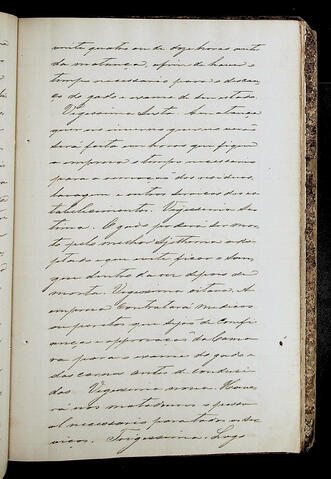 vinte quatro ou de doze horas antes
da matança, afim de haver o
tempo necessario para o descan-
ço do gado e exame de seu estado.
Vigessima Sexta. A matança
quer no inverno quer no verão
será feita em horas que fique
a empreza o tempo necessario
para a remoção dos residuos,
lavagem e outros serviços do es-
tabelecimento. Vigessima Se-
tima. O gado poderá ser mor-
to pelo melhor systhema adop-
tado e que evite ficar o san-
gue dentro da rez depois de
morta. Vigessima oitava. A
empreza contratará medicos
ou peritos que sejão de confi-
ança e approvação da Cama-
ra para o exame do gado e
das carnes antes de conduzi-
das. Vigessima nona. Have-
rá nos matadouros o pesso-
al necessario para todos os ser-
viços. Trigessima. Logo